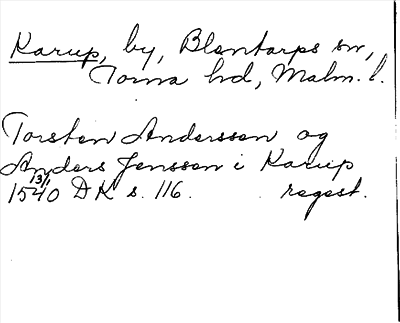 Karup, by, Blentarps sn,
Torna hd, Malm. l.
Torsten Anderssen og
Anders Jenssen i Karup
13/1
1540 DK s. 116. regest.